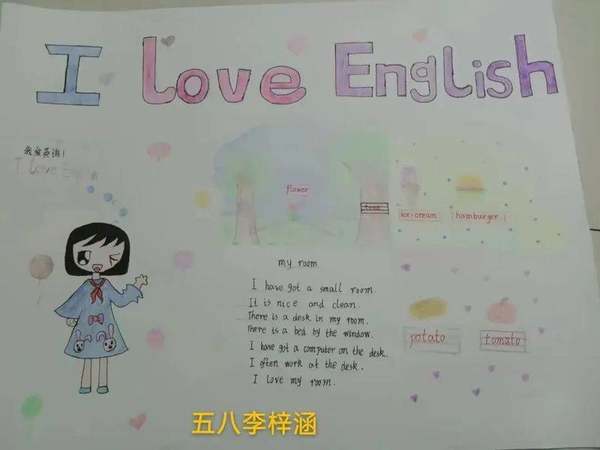 I Love English
我爱英语!
I Love
flower
ice cream
hamburger
my room
I have got a small room.
It is nice and clean.
There is a desk in my room.
There is a bed by the window.
I have got a computer on the desk.
I often work at the desk.
I love my room.
potato
tomato
五八李梓涵